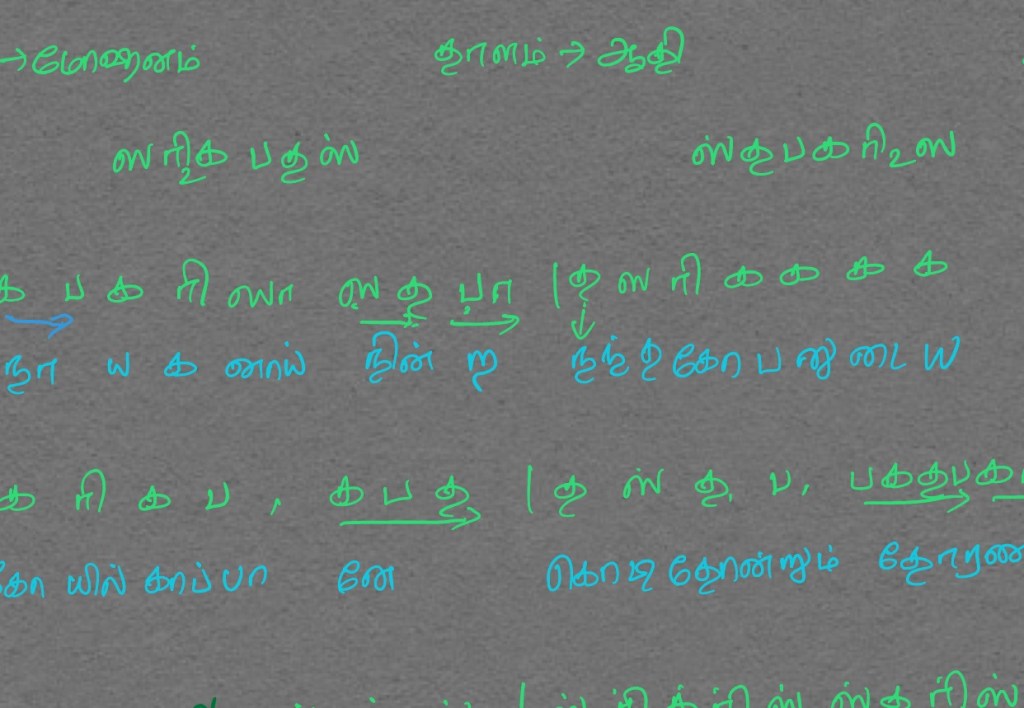 →மோஹனம் தாளம் → ஆதி
ஸரி2க பதஸ் ஸ்தபகரி2ஸ
க ப க ரி ஸா ஸ் த பா | த ஸ ரி க க க க
நா ய க னாய் நின் ற நந்த கோ ப னு டை ய
க ரி க ப , க ப த | த ஸ் த ப , பகதபக
கோ யில் காப்பா னே கொடி தோன்றும் தோரண